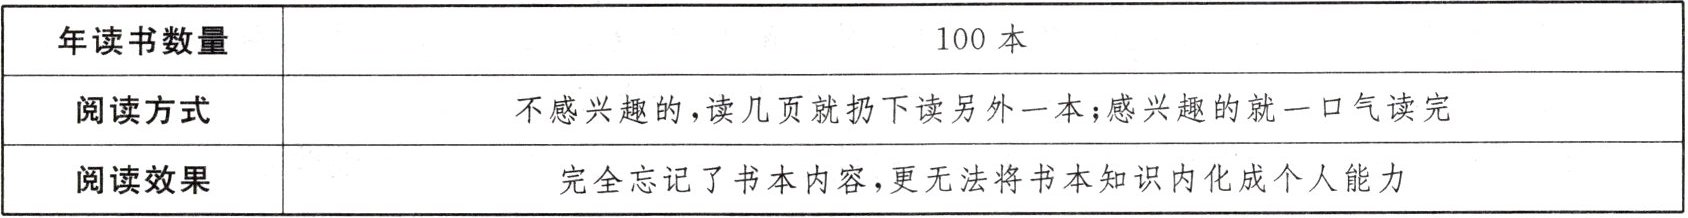 年读书数量 100 本
阅读方式 不感兴趣的,读几页就扔下读另外一本;感兴趣的就一口气读完
阅读效果 完全忘记了书本内容,更无法将书本知识内化成个人能力